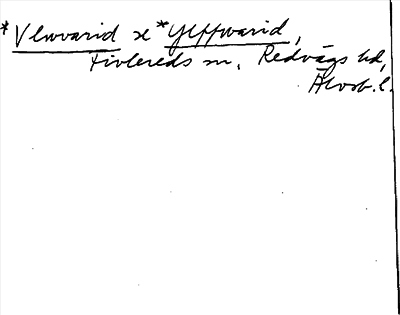 *Vlwvarid x *Ylffwarid,
Tivlereds sn, Redvägs hd,
Älvsb. l.